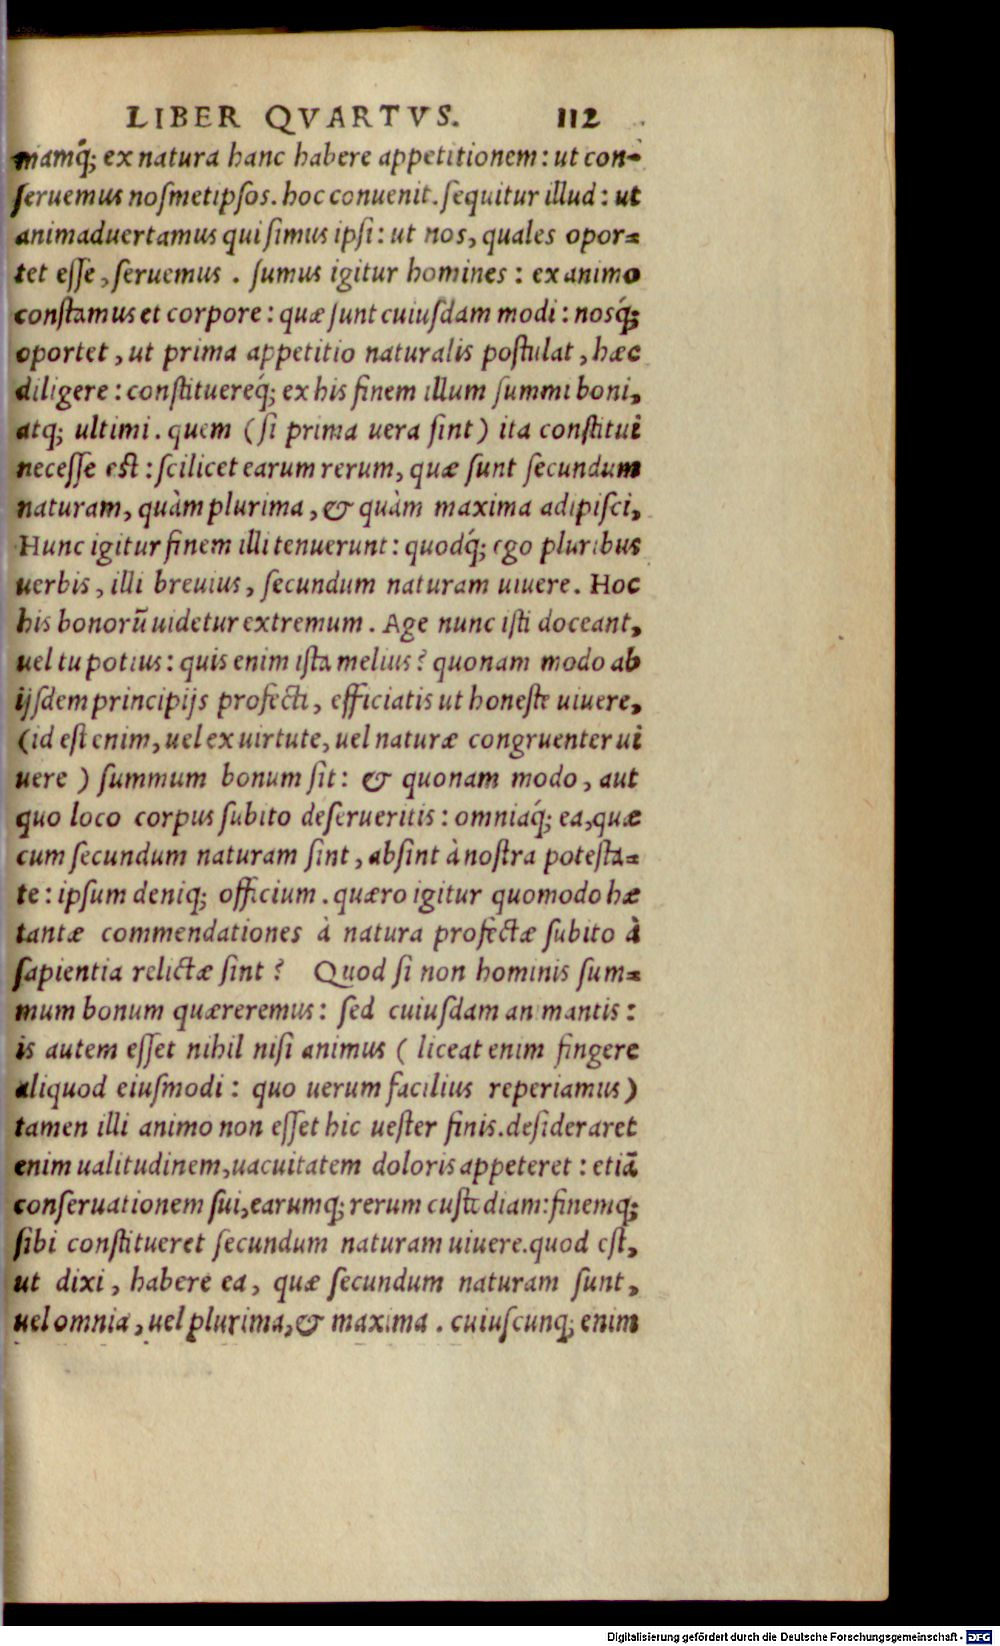 LIBER QVARTVS. 112
mamq́; ex natura hanc habere appetitionem: ut con-
ſeruemus noſmetipſos. hoc conuenit. ſequitur illud: ut
animaduertamus qui ſimus ipſi: ut nos, quales opor-
tet eſſe, ſeruemus. ſumus igitur homines: ex animo
conſtamus et corpore: quæ ſunt cuiuſdam modi: nosq́;
oportet, ut prima appetitio naturalis poſtulat, hæc
diligere: conſtituereq́; ex his finem illum ſummi boni,
atq; ultimi. quem (ſi prima uera ſint) ita conſtitui
neceſſe eſt: ſcilicet earum rerum, quæ ſunt ſecundum
naturam, quàm plurima, & quàm maxima adipiſci,
Hunc igitur finem illi tenuerunt: quodq́; ego pluribus
uerbis, illi breuius, ſecundum naturam uiuere. Hoc
his bonorũ uidetur extremum. Age nunc iſti doceant,
uel tu potius: quis enim iſta melius? quonam modo ab
ijſdem principijs profecti, efficiatis ut honeſte uiuere,
(id eſt enim, uel ex uirtute, uel naturæ congruenter ui
uere) ſummum bonum ſit: & quonam modo, aut
quo loco corpus ſubito deſerueritis: omniaq́; ea, quæ
cum ſecundum naturam ſint, abſint à noſtra poteſta-
te: ipſum deniq; officium. quæro igitur quomodo hæ
tantæ commendationes à natura profectæ ſubito à
ſapientia relictæ ſint? Quod ſi non hominis ſum-
mum bonum quæreremus: ſed cuiuſdam animantis:
is autem eſſet nihil niſi animus (liceat enim fingere
aliquod eiuſmodi: quo uerum facilius reperiamus)
tamen illi animo non eſſet hic ueſter finis. deſideraret
enim ualitudinem, uacuitatem doloris appeteret: etiã
conſeruationem ſui, earumq; rerum cuſtodiam: finemq;
ſibi conſtitueret ſecundum naturam uiuere. quod eſt,
ut dixi, habere ea, quæ ſecundum naturam ſunt,
uel omnia, uel plurima, & maxima. cuiuſcunq; enim
Digitalisierung gefördert durch die Deutsche Forschungsgemeinschaft - DFG